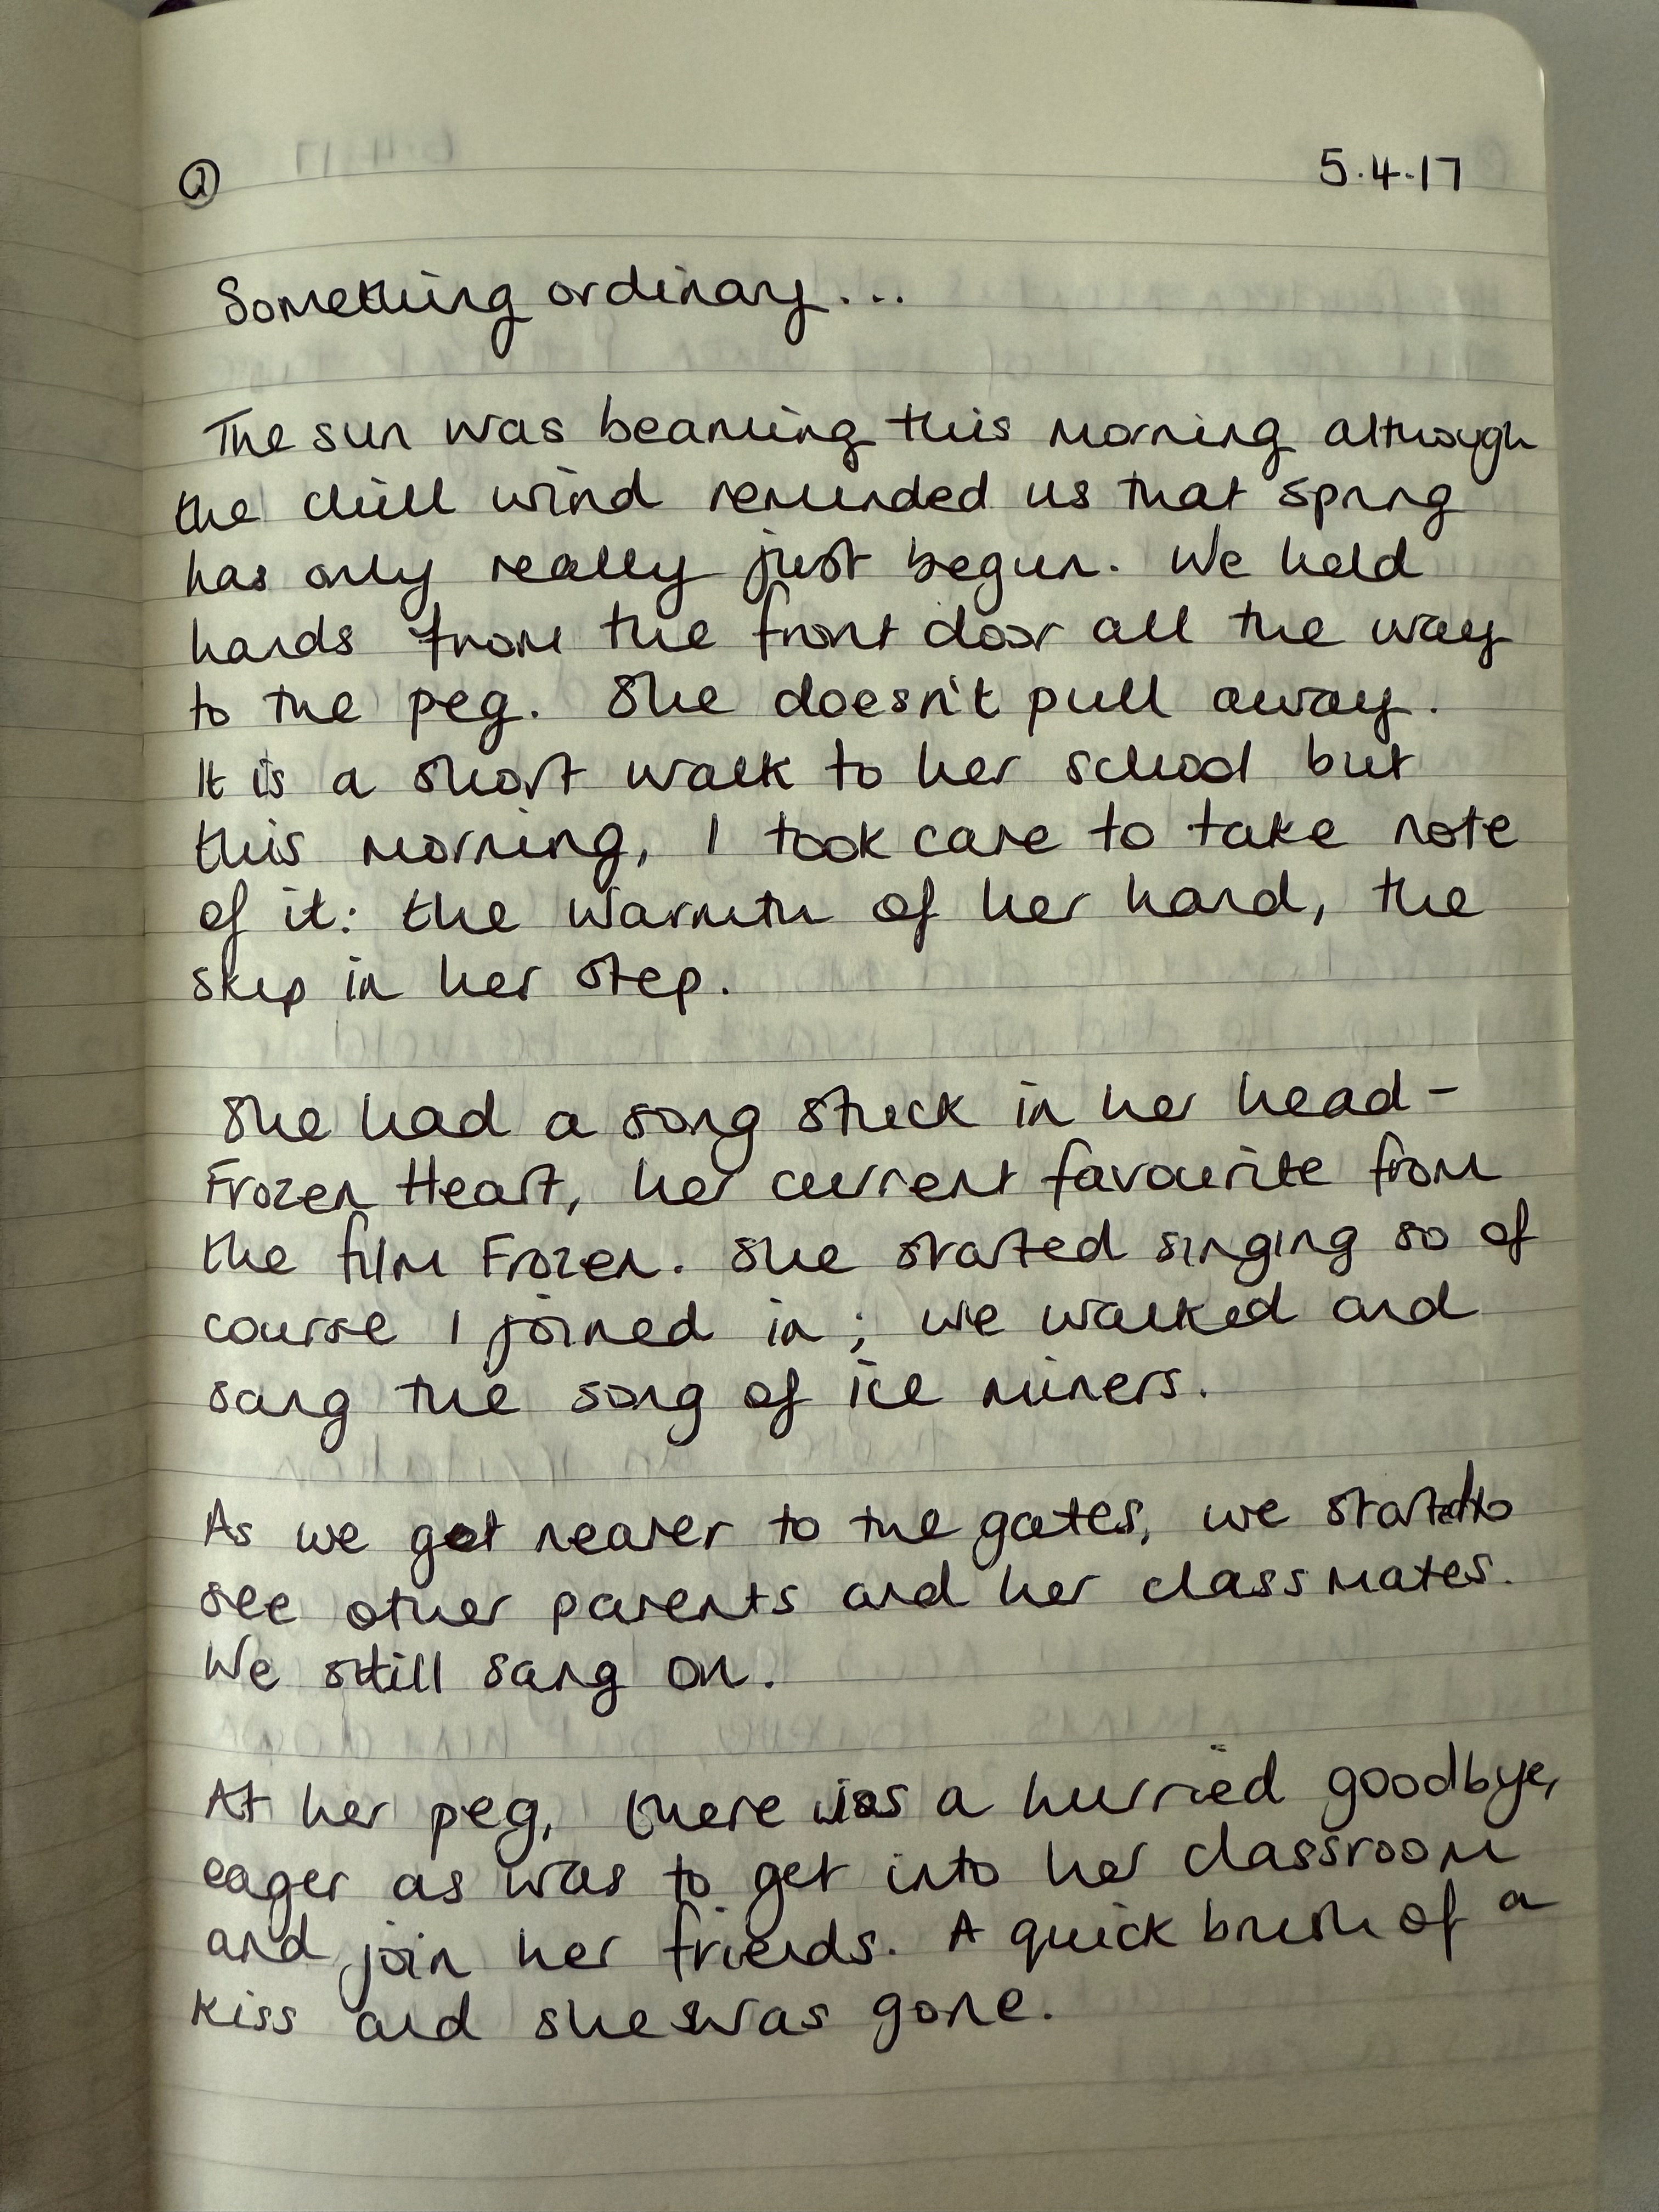 ② 5.4.17
Something ordinary...
The sun was beaming this morning although
the chill wind reminded us that spring
has only really just begun. We held
hands from the front door all the way
to the peg. She doesn't pull away.
It is a short walk to her school but
this morning, I took care to take note
of it: the warmth of her hand, the
skip in her step.
She had a song stuck in her head -
Frozen Heart, her current favourite from
the film Frozen. She started singing so of
course I joined in; we walked and
sang the song of ice miners.
As we got nearer to the gates, we started to
see other parents and her classmates.
We still sang on.
At her peg, there was a hurried goodbye,
eager as was to get into her classroom
and join her friends. A quick brush of a
kiss and she was gone.